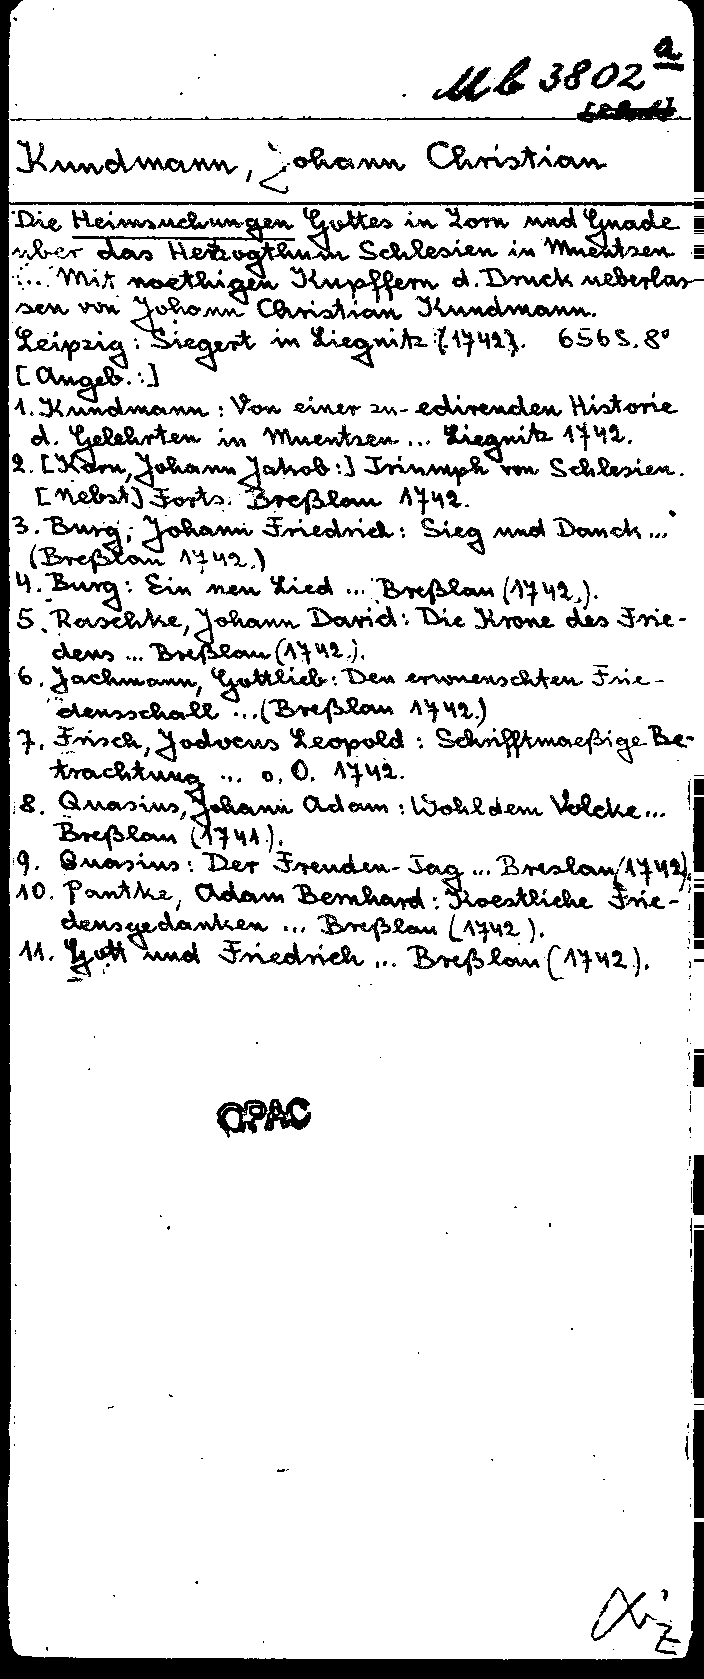 Mb 3802 a
Kundmann, Johann Christian
Die Heimsuchungen Gottes in Zorn und Gnade
über das Hertzogthum Schlesien in Muentzen
... Mit noethigen Kupffern d. Druck ueberlas-
sen von Johann Christian Kundmann.
Leipzig: Siegert in Liegnitz (1742). 656 S. 8°
[Angeb.:]
1. Kundmann: Von einer zu-edirenden Historie
d. Gelehrten in Muentzen ... Liegnitz 1742.
2. [Korn, Johann Jakob:] Triumph von Schlesien.
[Nebst] Forts. Breßlau 1742.
3. Burg, Johann Friedrich: Sieg und Danck ...
(Breßlau 1742.)
4. Burg: Ein neu Lied ... Breßlau (1742.).
5. Raschke, Johann David: Die Krone des Frie-
dens ... Breßlau (1742.).
6. Jachmann, Gottlieb: Den erwuenschten Frie-
densschall ... (Breßlau 1742.)
7. Frisch, Jodocus Leopold: Schrifftmaeßige Be-
trachtung ... o. O. 1742.
8. Quasius, Johann Adam: Wohl dem Volcke ...
Breßlau (1741.).
9. Quasius: Der Freuden-Tag ... Breslau (1742).
10. Pantke, Adam Bernhard: Koestliche Frie-
densgedanken ... Breßlau (1742).
11. Gott und Friedrich ... Breßlau (1742).
OPAC